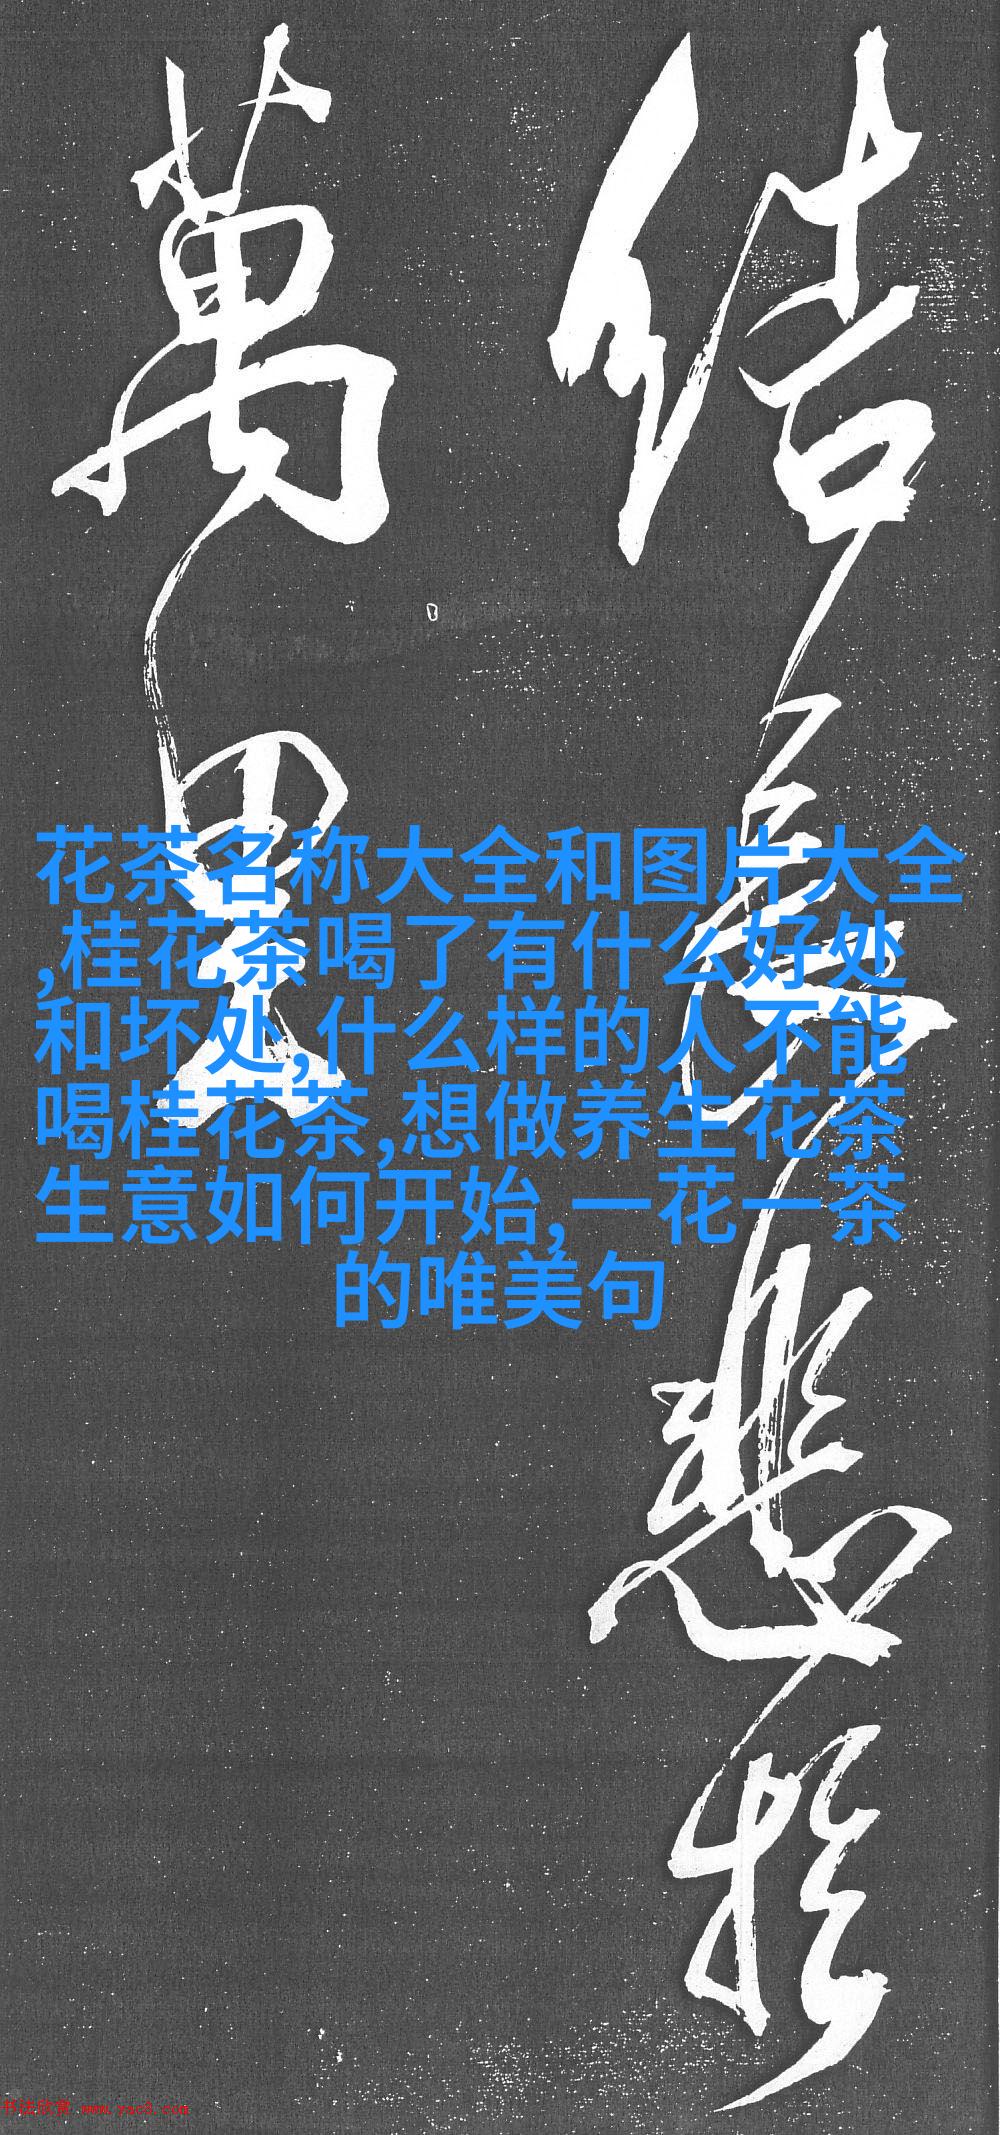 结长悲於
萬里
花茶名称大全和图片大全
,桂花茶喝了有什么好处
和坏处,什么样的人不能
喝桂花茶,想做养生花茶
生意如何开始,一花一茶
的唯美句
书法欣赏 www.yac8.com